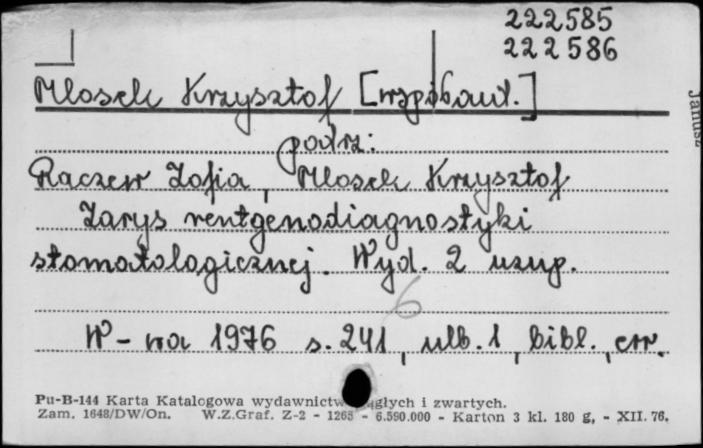 222585
222586
Mlosek Krzysztof [współaut.]
podrz:
Raczew Zofia, Mlosek Krzysztof
Zarys rentgenodiagnostyki
stomatologicznej. Wyd. 2 uzup.
6
W-wa 1976 s. 241, ulb. 1, bibl., err.
Pu-B-144 Karta Katalogowa wydawnictw ągłych i zwartych.
Zam. 1648/DW/On. W.Z.Graf. Z-2 - 1265 - 6.590.000 - Karton 3 kl. 180 g, - XII. 76.
Janusz